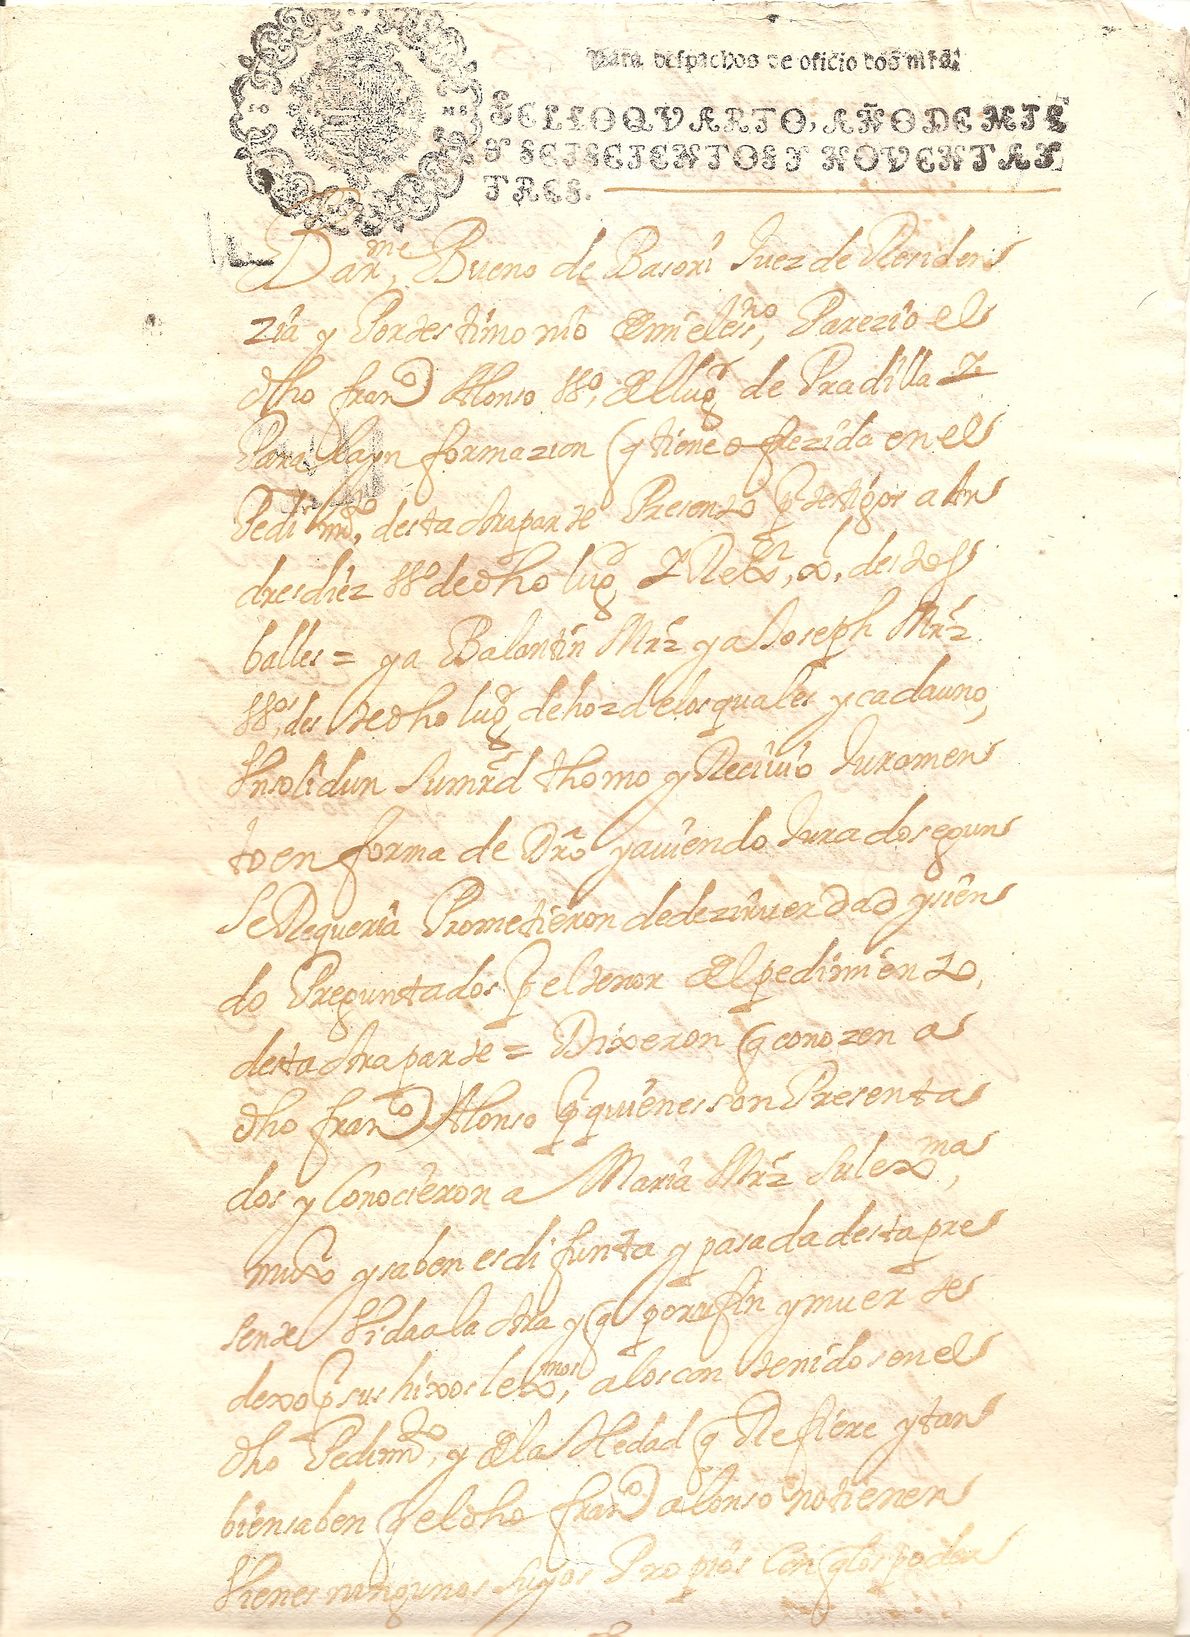 Para despachos de oficio dos mrs.
SELLO QVARTO, AÑO DE MIL
Y SEISCIENTOS Y NOVENTA Y
TRES.
Barme, Bueno de Basori Juez de Residen
zia y Por testimonio de mi el essno, Parezio el
dho franco Alonso vo, del lugr de Pradilla Y
Para la yn formazion q tiene ofrezida en el
Pedimto, desta otra parte Presento p testigos a An
dres diez vo de dho lugr Y
balles = y a Balentin Mrz y a Joseph Mrz
vos, des de dho lugr de hoz de los quales y cada uno,
Ynsolidun Su mrd thomo y Recivio Juramen
to en forma de Dro y aviendo Jurado segun
Se Requeria Prometieron de dezir verdad y sien
do Preguntados p el tenor del pedimiento,
desta otra parte = Dixeron q conozen a
dho franco Alonso p quienes son Presenta
dos y Conocieron a Maria Mrz Su lexma,
muxr y saben es di funta y pasada desta pre
sente Vida a la otra y q por su fin y muerte
dexo p sus hixos lexmos, a los con tenidos en el
dho Pedimto, y de la Hedad q Refiere y tan
bien saben q el dho franco alonso no tiene
Vienes ningunos Suyos Propios Con q los poder